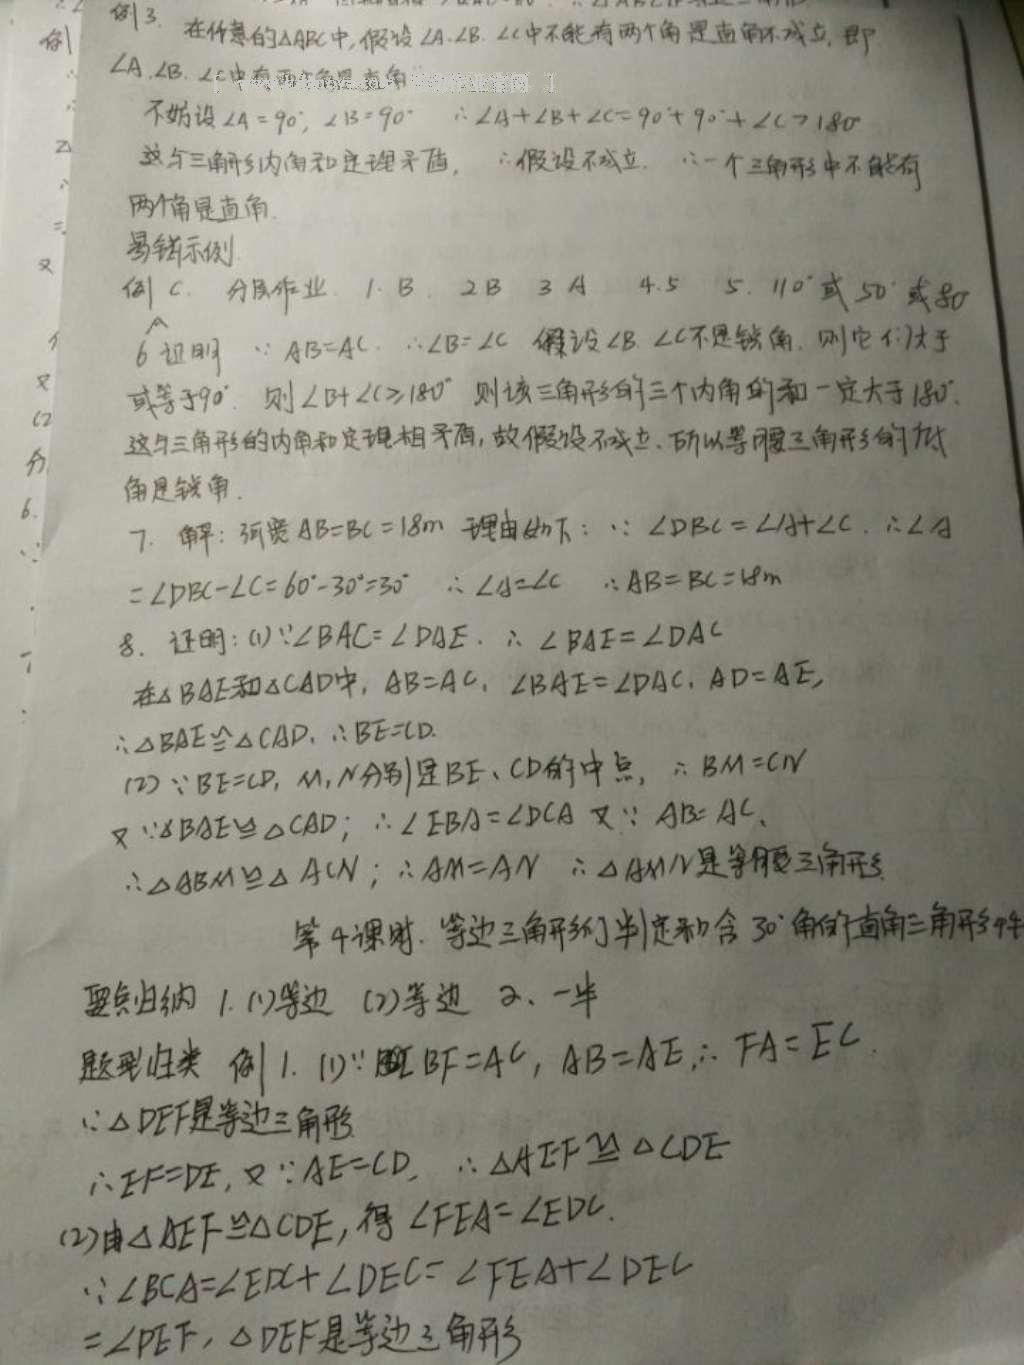 例3. 在任意的△ABC中,假设∠A.∠B.∠C中不能有两个角是直角不成立,即
∠A.∠B.∠C中有两个角是直角
不妨设∠A=90°,∠B=90° ∴∠A+∠B+∠C=90°+90°+∠C>180°
这与三角形内角和定理矛盾, ∴假设不成立. ∴一个三角形中不能有
两个角是直角.
易错示例.
例 C. 分层作业. 1.B. 2 B 3 A 4.5 5. 110°或50°或80°
6 证明 ∵ AB=AC. ∴∠B=∠C 假设∠B.∠C不是锐角.则它们大于
或等于90°. 则∠B+∠C≥180° 则该三角形的三个内角的和一定大于180°.
这与三角形的内角和定理相矛盾,故假设不成立、所以等腰三角形的底
角是锐角.
7. 解:河宽AB=BC=18m 理由如下: ∵ ∠DBC=∠A+∠C. ∴∠A
=∠DBC-∠C=60°-30°=30° ∴∠A=∠C ∴AB=BC=18m
8. 证明:(1)∵∠BAC=∠DAE. ∴ ∠BAE=∠DAC
在△BAE和△CAD中, AB=AC, ∠BAE=∠DAC, AD=AE,
∴△BAE≌△CAD. ∴BE=CD.
(2)∵BE=CD, M,N分别是BE、CD的中点, ∴ BM=CN
又∵△BAE≌△CAD; ∴∠EBA=∠DCA 又∵ AB=AC,
∴△ABM≌△ACN; ∴AM=AN ∴△AMN是等腰三角形
第4课时. 等边三角形的判定和含30°角的直角三角形的性
要点归纳 1.(1)等边 (2)等边 2、一半
题型归类 例1. (1)∵ BF=AC, AB=AE,∴ FA=EC.
∵△DEF是等边三角形
∴EF=DE,又∵AE=CD, ∴△AEF≌△CDE
(2)由△AEF≌△CDE,得∠FEA=∠EDC.
∵∠BCA=∠EDC+∠DEC=∠FEA+∠DEC
=∠DEF,△DEF是等边三角形